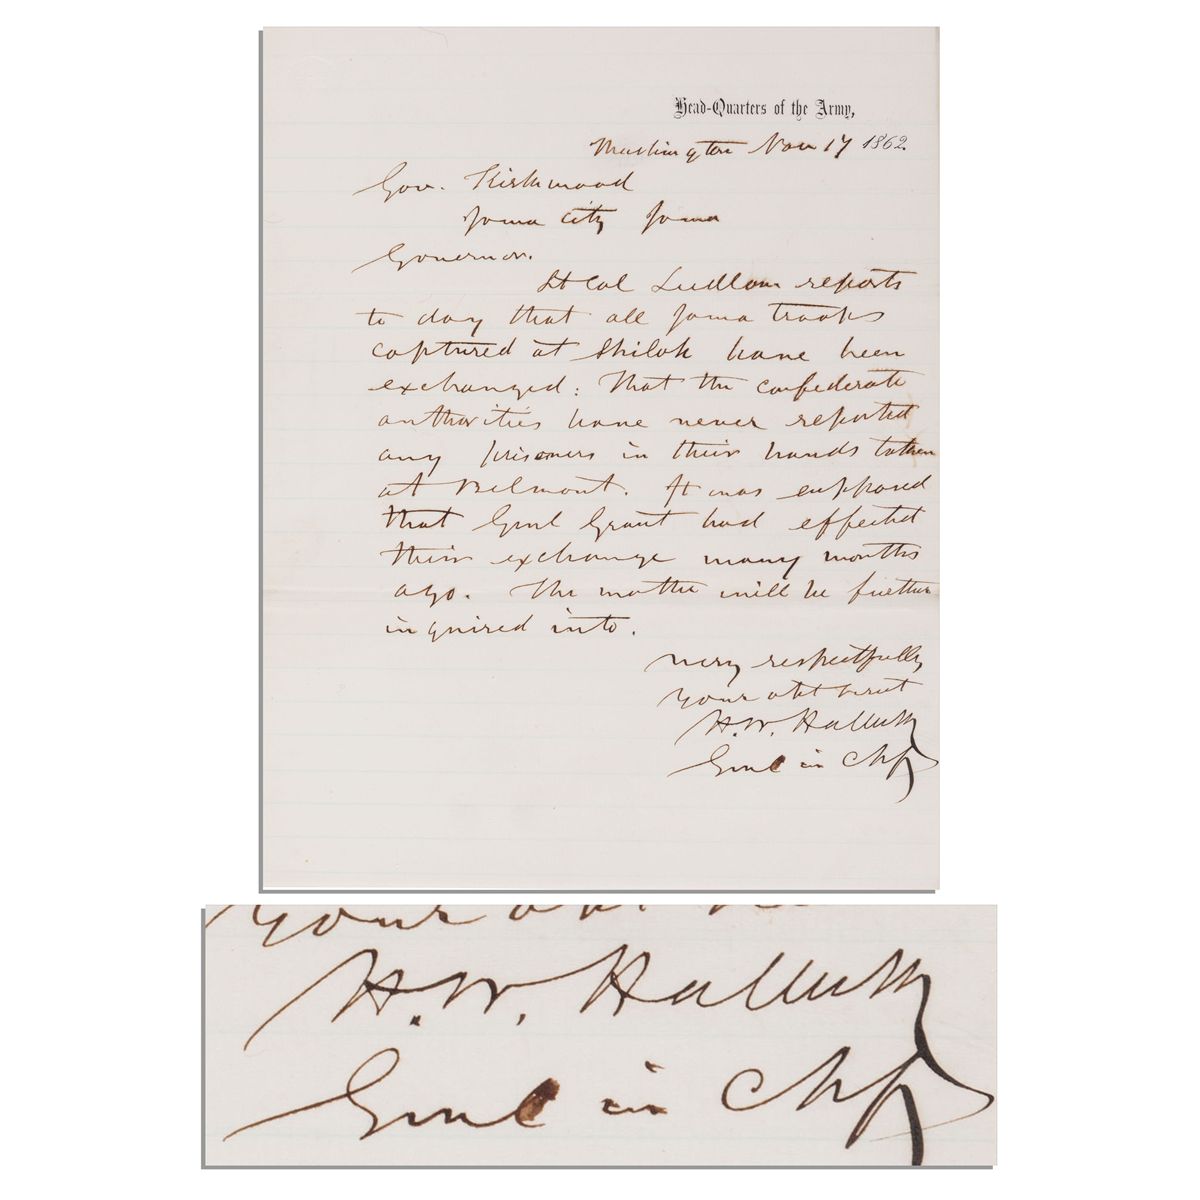 Head-Quarters of the Army,
Washington Nov 17 1862.
Gov. Kirkwood
Iowa City Iowa
Governor.
Lt Col Ludlow reports
to day that all Iowa troops
captured at Shiloh have been
exchanged: That the confederate
authorities have never reported
any prisoners in their hands taken
at Belmont. It was supposed
that Genl Grant had effected
their exchange many months
ago. The matter will be further
inquired into.
Very respectfully
Your obt servt
H. W. Halleck
Genl in Chf
Your obt
H. W. Halleck
Genl in Chf